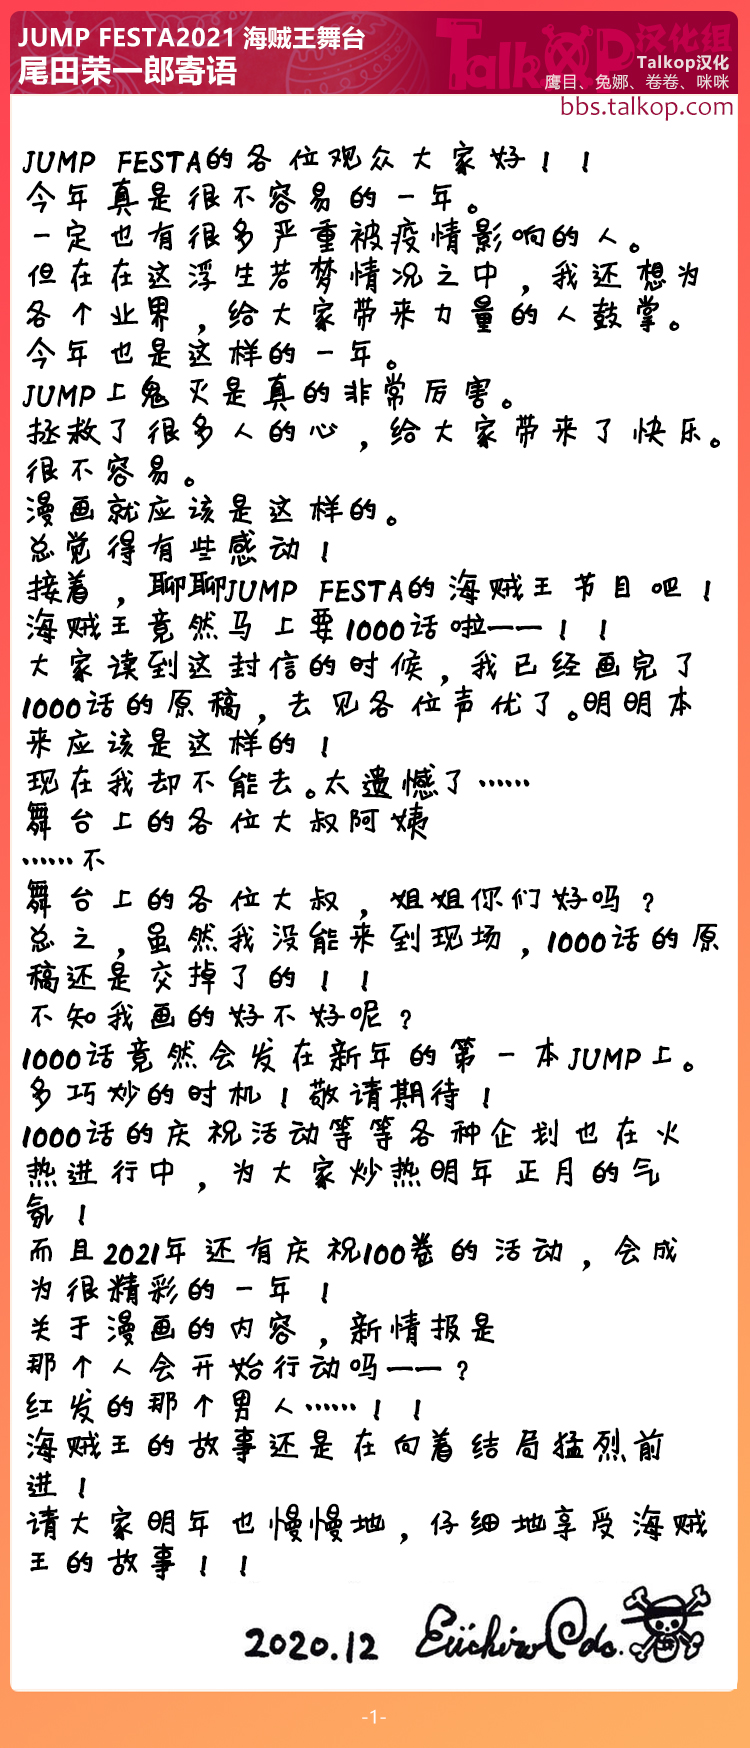 JUMP FESTA2021 海贼王舞台
尾田荣一郎寄语
TalkOP汉化组
Talkop汉化
鹰目、兔娜、卷卷、咪咪
bbs.talkop.com
JUMP FESTA的各位观众大家好！！
今年真是很不容易的一年。
一定也有很多严重被疫情影响的人。
但在在这浮生若梦情况之中，我还想为
各个业界，给大家带来力量的人鼓掌。
今年也是这样的一年。
JUMP上鬼灭是真的非常厉害。
拯救了很多人的心，给大家带来了快乐。
很不容易。
漫画就应该是这样的。
总觉得有些感动！
接着，聊聊JUMP FESTA的海贼王节目吧！
海贼王竟然马上要1000话啦——！！
大家读到这封信的时候，我已经画完了
1000话的原稿，去见各位声优了。明明本
来应该是这样的！
现在我却不能去。太遗憾了……
舞台上的各位大叔阿姨
……不
舞台上的各位大叔，姐姐你们好吗？
总之，虽然我没能来到现场，1000话的原
稿还是交掉了的！！
不知我画的好不好呢？
1000话竟然会发在新年的第一本JUMP上。
多巧妙的时机！敬请期待！
1000话的庆祝活动等等各种企划也在火
热进行中，为大家炒热明年正月的气
氛！
而且2021年还有庆祝100卷的活动，会成
为很精彩的一年！
关于漫画的内容，新情报是
那个人会开始行动吗——？
红发的那个男人……！！
海贼王的故事还是在向着结局猛烈前
进！
请大家明年也慢慢地，仔细地享受海贼
王的故事！！
2020.12 Eiichiro Oda.
-1-